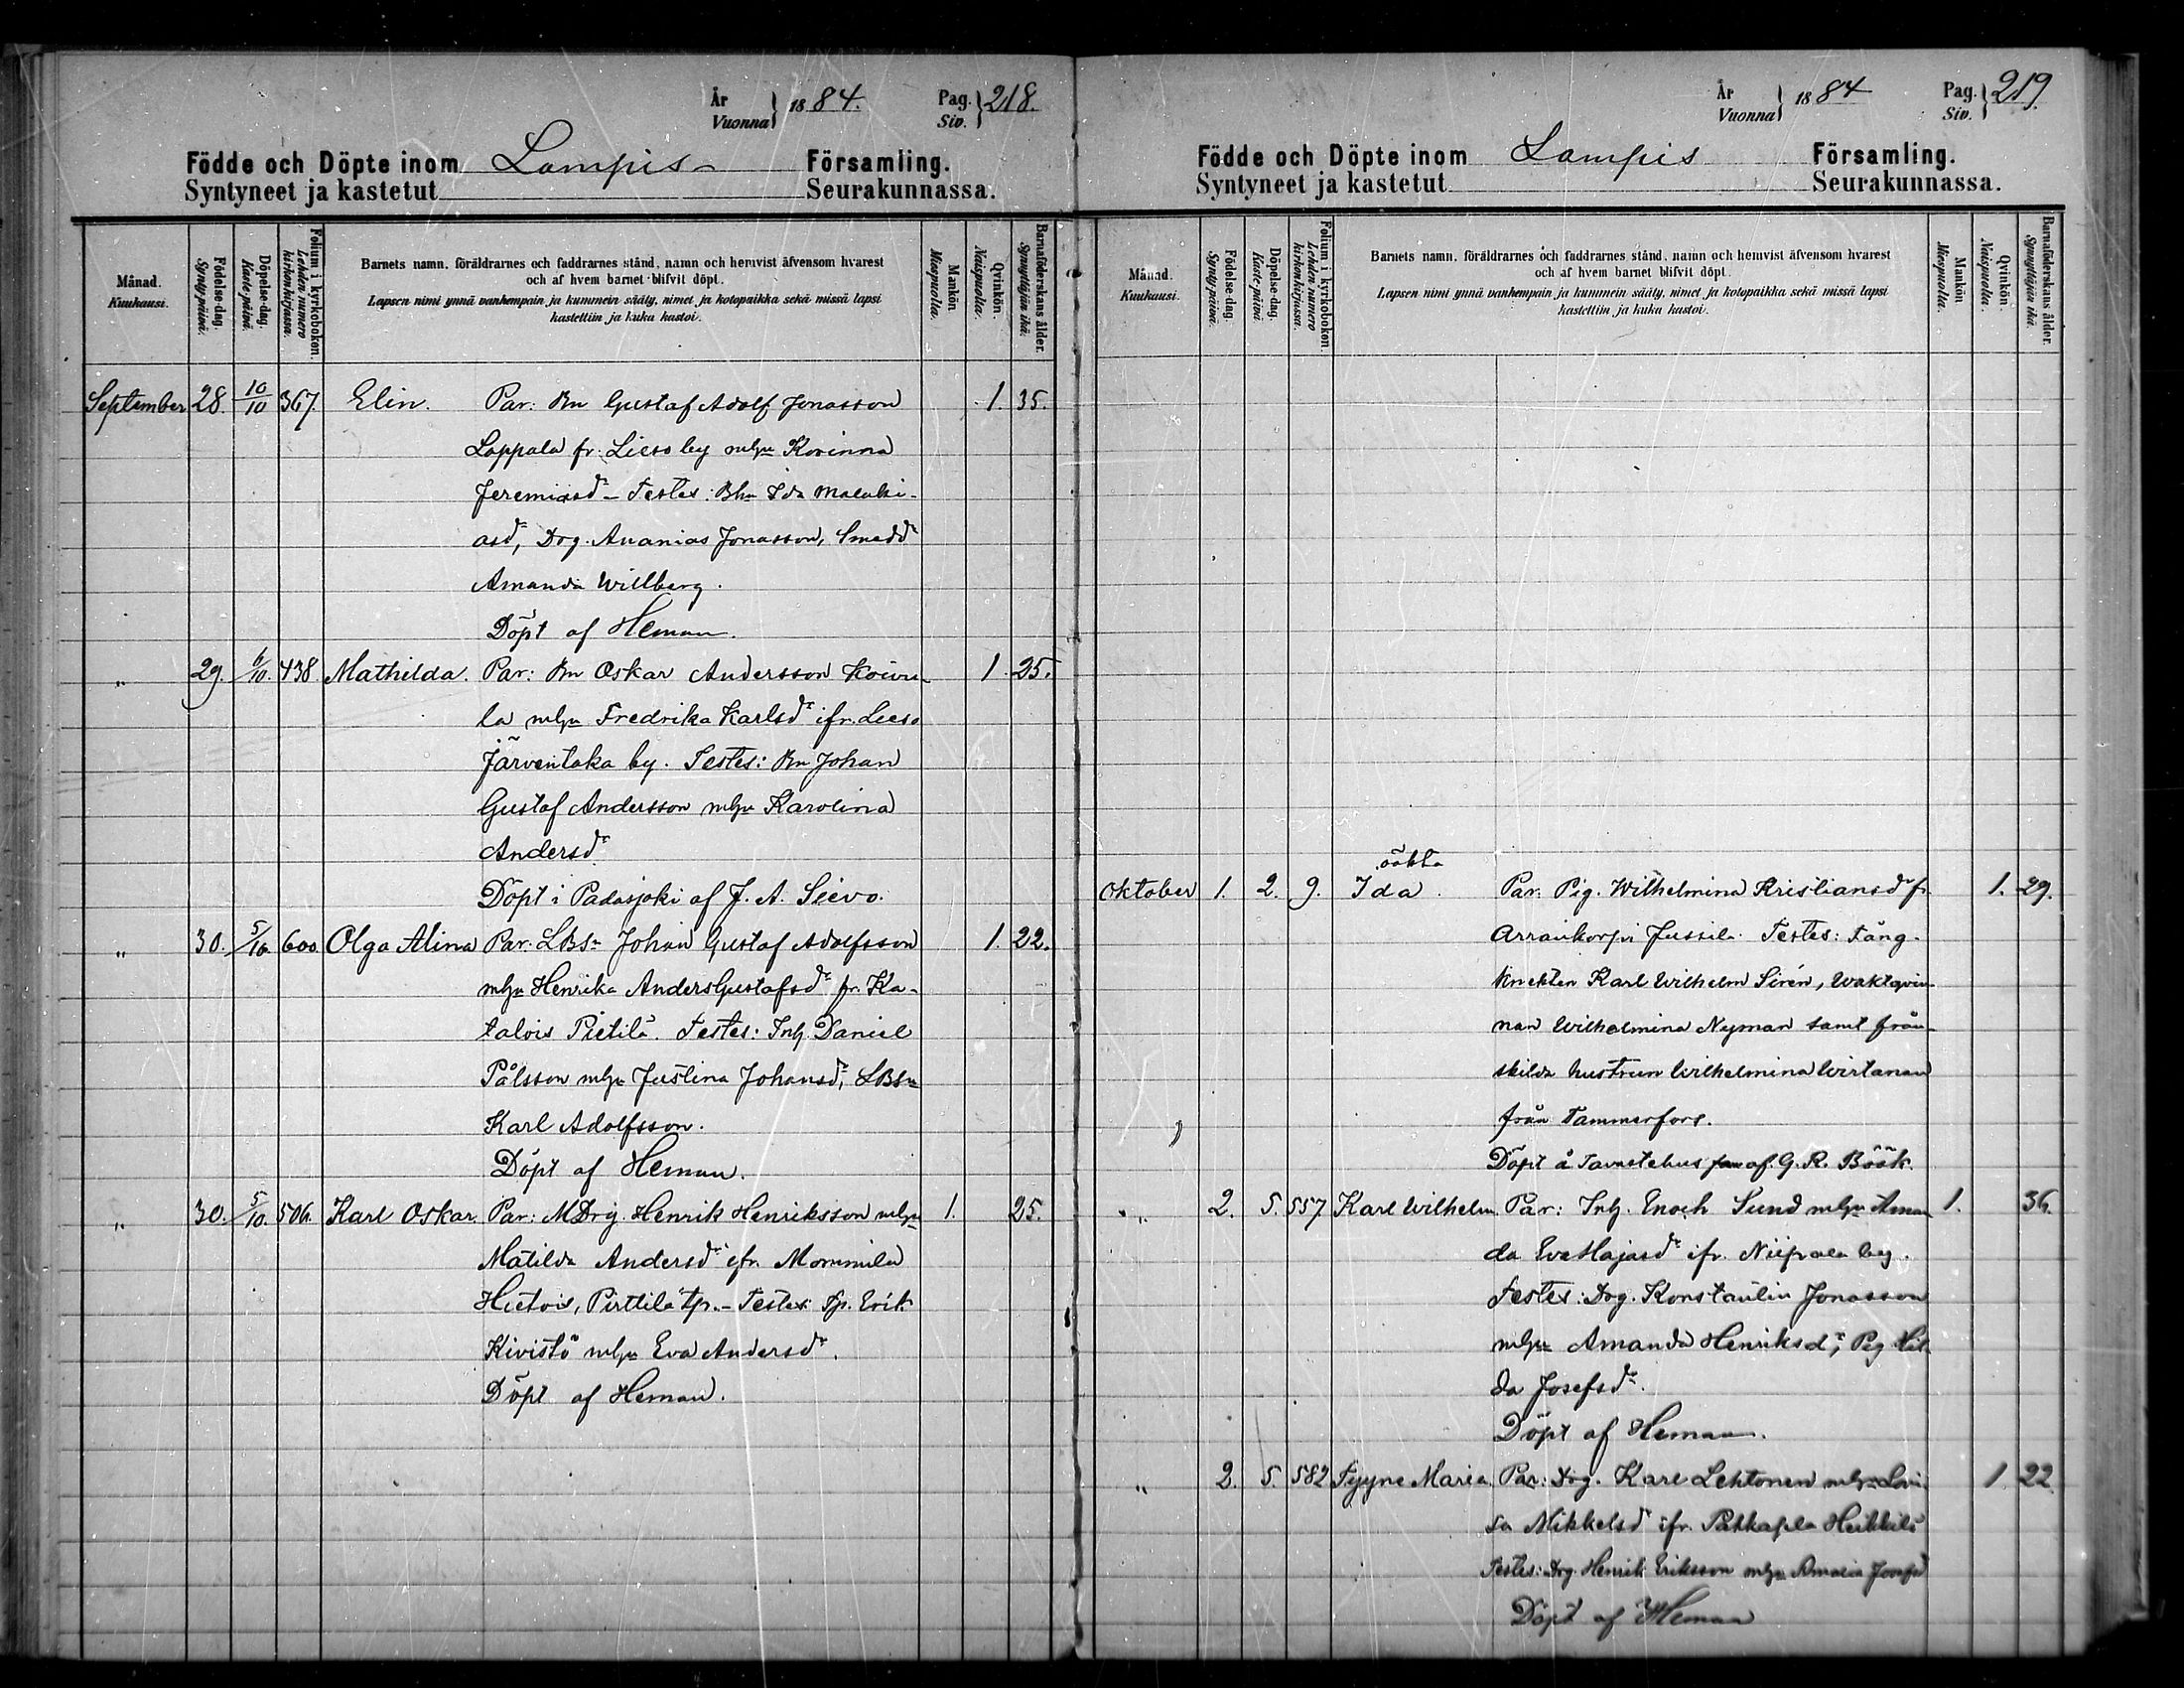 År
Vuonna } 1884. Pag.
Siv. } 218.
Födde och Döpte inom Lampis Församling.
Syntyneet ja kastetut Seurakunnassa.
Månad.
Kuukausi.
Födelse-dag.
Synty-päivä.
Döpelse-dag.
Kaste-päivä.
Folium i kyrkoboken.
Lehden numero
kirkonkirjassa.
Barnets namn, föräldrarnes och faddrarnes stånd, namn och hemvist äfvensom hvarest
och af hvem barnet blifvit döpt.
Lapsen nimi ynnä vanhempain ja kummein sääty, nimet ja kotopaikka sekä missä lapsi
kastettiin ja kuka kastoi.
Mankön
Miespuolta.
Qvinkön.
Naispuolta.
Barnaföderskans ålder.
Synnyttäjän ikä.
September 28. 10/10 367. Elin. Par: Bn Gustaf Adolf Jonasson 1. 35.
Lappala fr. Lieso by mhu Korinna
Jeremiasdr – Testes: Bhu Ida Malaki-
asdr, Drg. Ananias Jonasson, Smeddr
Amanda Willberg.
Döpt af Heman.
„ 29. 6/10. 438. Mathilda. Par: Bn Oskar Andersson Koivu-
la mhu Fredrika Karlsdr ifr. Lieso 1. 25.
Järventaka by. Testes: Bn Johan
Gustaf Andersson mhu Karolina
Andersdr
Döpt i Padasjoki af J. A. Sievo.
„ 30. 5/10. 600. Olga Alina Par: LBSn Johan Gustaf Adolfsson 1. 22.
mhu Henrika AndersGustafsdr fr. Ka-
talois Pietilä. Testes: Inh. Daniel
Pålsson mhu Justina Johansdr, LBSn
Karl Adolfsson.
Döpt af Heman.
„ 30. 5/10. 506. Karl Oskar Par: MDrg. Henrik Henriksson mhu 1. 25.
Matilda Andersdr ifr. Mommila
Hietois, Pirttilä tp. – Testes: Tp. Erik
Kivistö mhu Eva Andersdr.
Döpt af Heman.
År
Vuonna } 1884 Pag.
Siv. } 219.
Födde och Döpte inom Lampis Församling.
Syntyneet ja kastetut Seurakunnassa.
Månad.
Kuukausi.
Födelse-dag.
Synty-päivä.
Döpelse-dag.
Kaste-päivä
Folium i kyrkoboken.
Lehden numero
kirkonkirjassa.
Barnets namn, föräldrarnes och faddrarnes stånd, namn och hemvist äfvensom hvarest
och af hvem barnet blifvit döpt.
Lapsen nimi ynnä vanhempain ja kummein sääty, nimet ja kotopaikka sekä missä lapsi
kastettiin ja kuka kastoi.
Mankön
Miespuolta.
Qvinkön.
Naispuolta.
Barnaföderskans ålder.
Synnyttäjän ikä.
oäkta
Oktober 1. 2. 9. Ida. Par: Pig. Wilhelmina Kristiansdr fr. 1. 29.
Arrankorpi Jussila. Testes: Fång-
knekten Karl Wilhelm Sirén, Waktqvin-
nan Wilhelmina Nyman samt från-
skilda hustrun Wilhelmina Wirtanen
från Tammerfors.
Döpt å Tavastehus af G. R. Böök.
„ 2. 5. 557 Karl Wilhelm. Par: Inh. Enoch Sund mhu Aman 1. 36.
da EvaMajasdr ifr. Niipala by.
Testes: Drg. Konstantin Jonasson
mhu Amanda Henriksdr, Pig. Hil-
da Josefsdr.
Döpt af Heman.
„ 2. 5. 582 Tyyne Maria. Par: Drg. Karl Lehtonen mhu Lovi- 1. 22.
sa Mikkelsdr ifr. Pätkäpla Heikkilä
Testes: Drg. Henrik Eriksson mhu Amalia Josefsd
Döpt af Heman